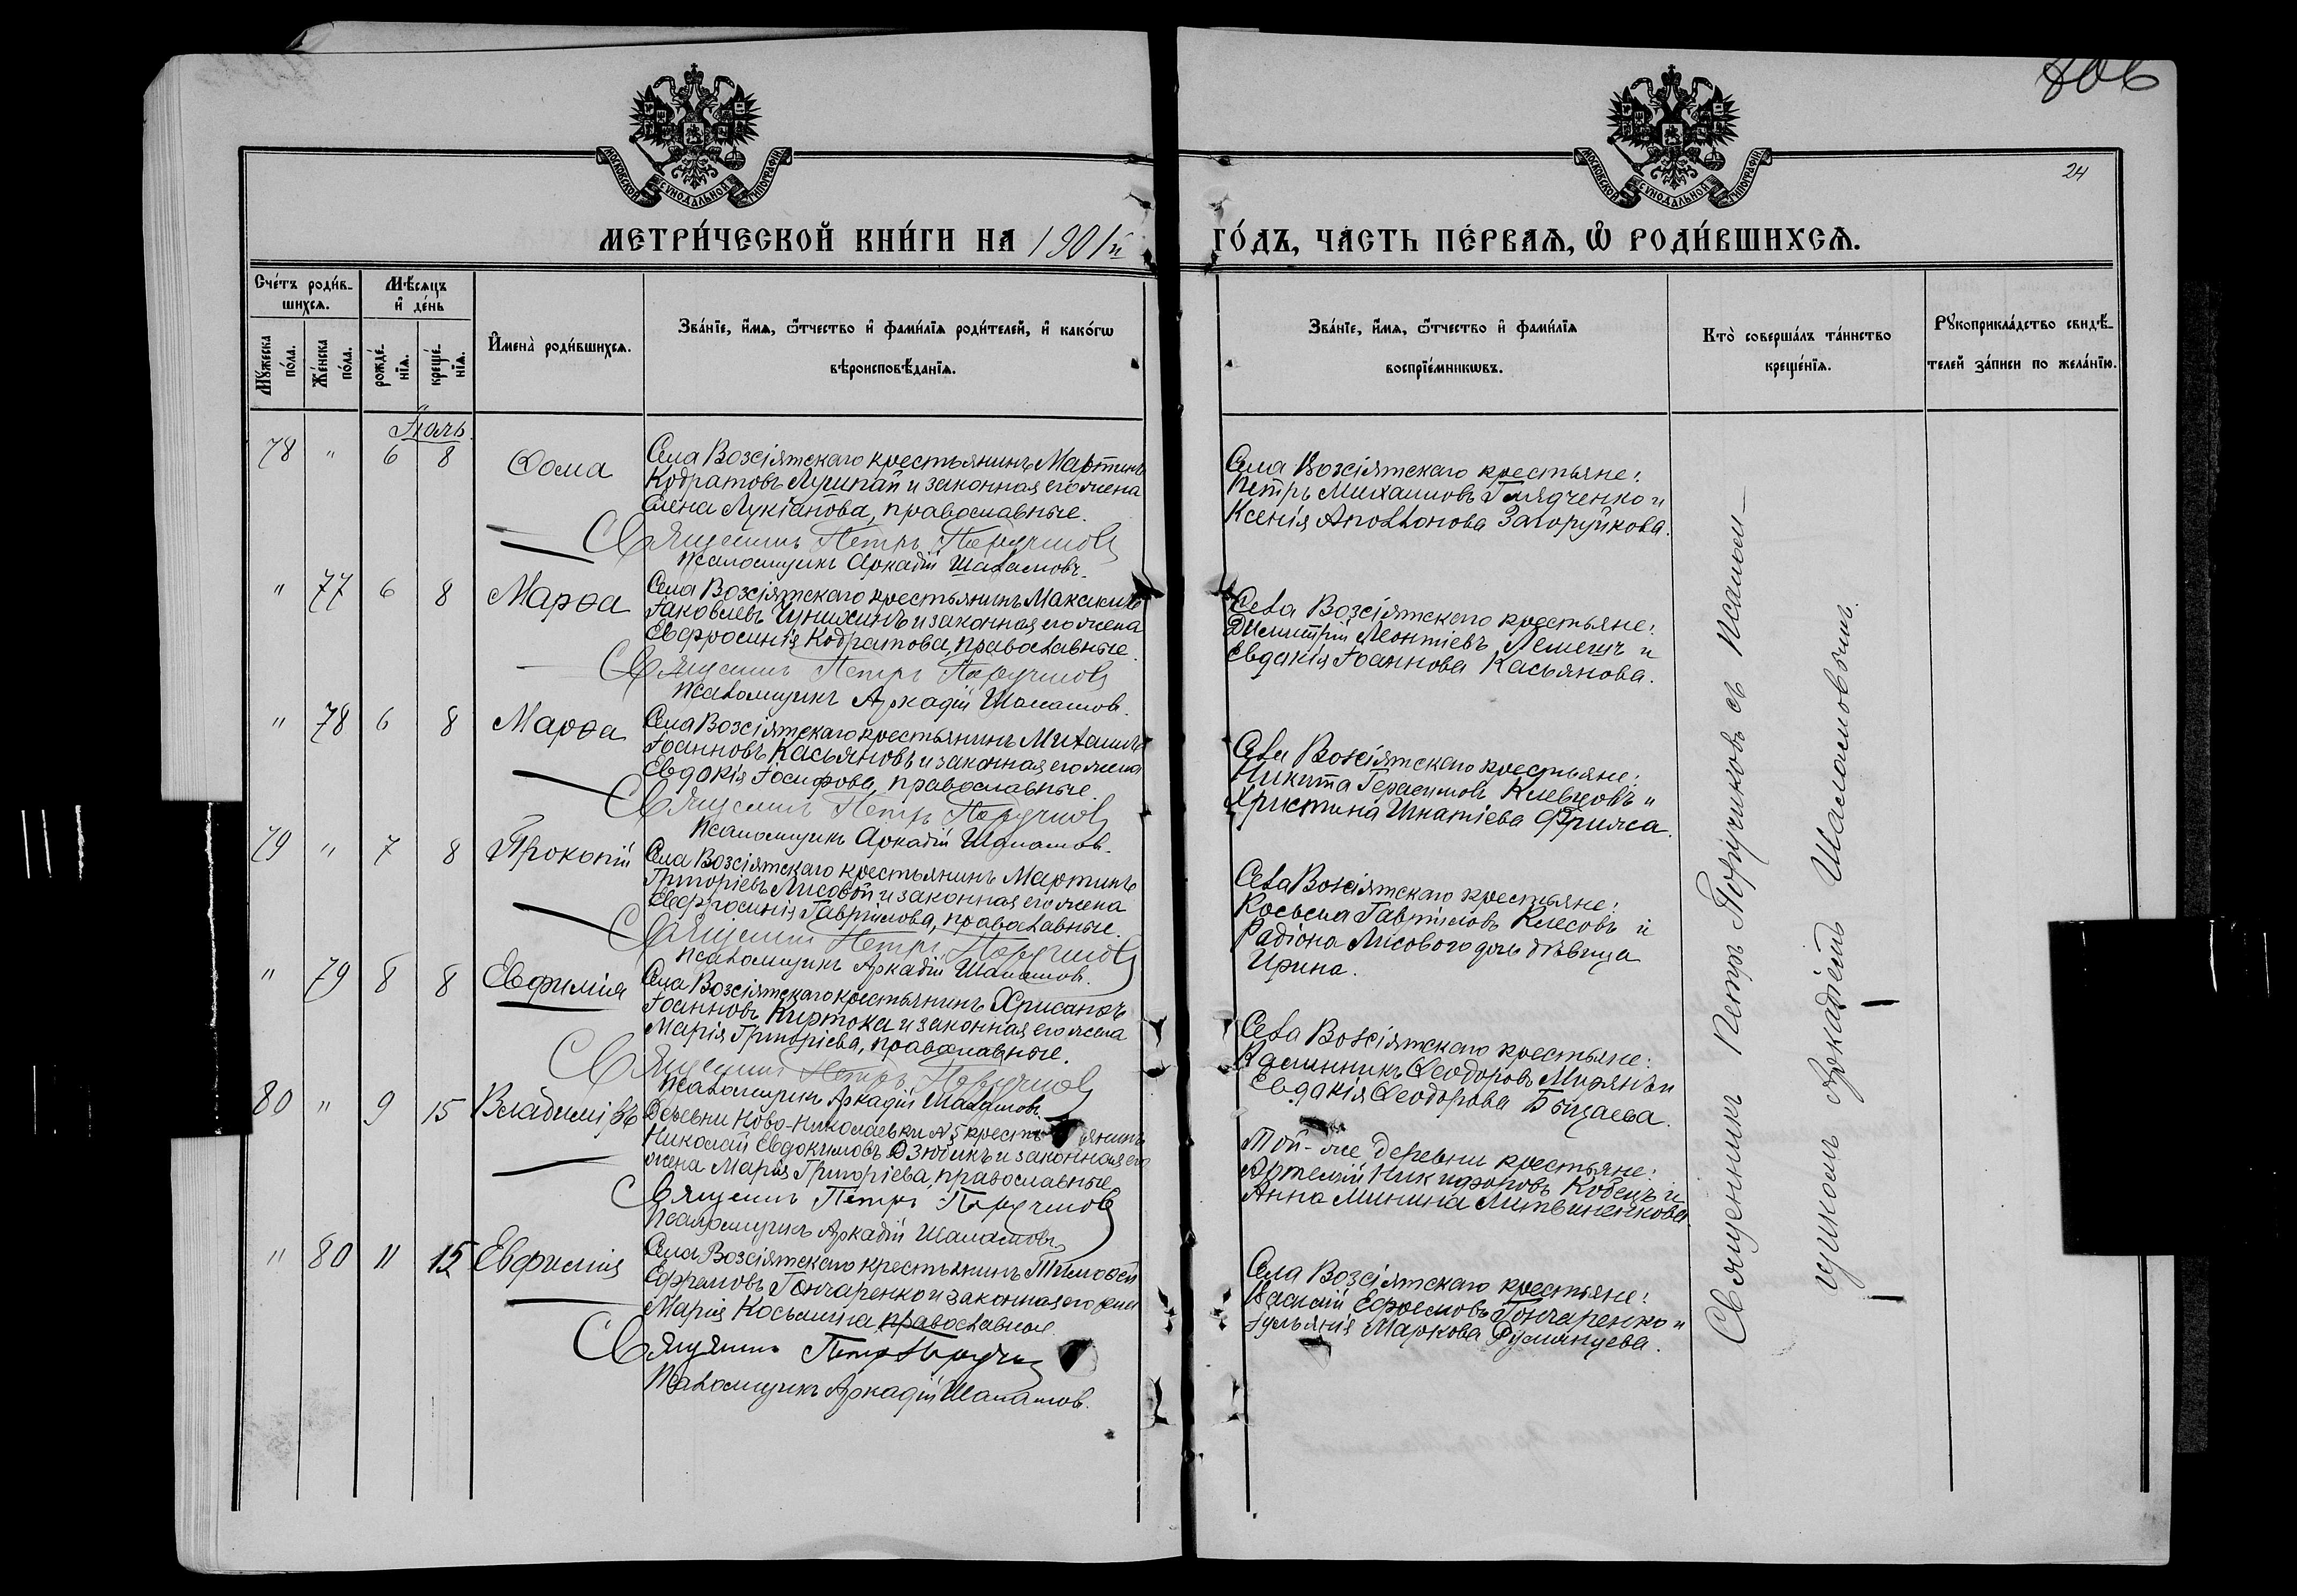 806
24
МОСКОВСКОЙ СѴНОДАЛЬНОЙ ТИПОГРАФІИ
МОСКОВСКОЙ СѴНОДАЛЬНОЙ ТИПОГРАФІИ
МЕТРИ́ЧЕСКОЙ КНИ́ГИ НА 1901й ГО́ДЪ, ЧА́СТЬ ПЕ́РВАѦ, Ѽ РОДИ́ВШИХСѦ.
Сче́тъ роди́в-
шихсѧ.
Мꙋжеска по́ла.
Же́нска по́ла.
Мѣ́сѧцъ
и҆ де́нь
рожде́-
нїѧ.
креще́-
нїѧ.
И҆мена̀ роди́вшихсѧ.
Зва́нїе, и҆́мѧ, ѻ҆́тчество и҆ фами́лїѧ роди́телей, и҆ како́гѡ
вѣроисповѣ́данїѧ.
Зва́нїе, и҆́мѧ, ѻ҆́тчество и҆ фами́лїѧ
воспрїе́мникѡвъ.
Кто̀ соверша́лъ та́инство
креще́нїѧ.
Рꙋкоприкла́дство свидѣ́-
телей за́писи по жела́нїю.
Іюль
78 " 6 8 Ѳома
Села Возсіятскаго крестьянинъ Мартинъ
Кодратовъ Лушпай и законная его жена
Елена Лукіанова, православные.
Священникъ Петръ Поручиковъ
Псаломщикъ Аркадій Шаламовъ.
Села Возсіятскаго крестьяне:
Петръ Михаиловъ Гмядченко и
Ксенія Аполлонова Загоруйкова.
" 77 6 8 Марѳа
Села Возсіятскаго крестьянинъ Максимъ
Іаковлевъ Чунихинъ и законная его жена
Евфросинія Кодратова, православные.
Священникъ Петръ Поручиковъ
Псаломщикъ Аркадій Шаламовъ.
Села Возсіятскаго крестьяне:
Димитрій Леонтіевъ Лемешъ и
Евдокія Іоаннова Касьянова.
" 78 6 8 Марѳа
Села Возсіятскаго крестьянинъ Михаилъ
Іоанновъ Касьяновъ и законная его жена
Евдокія Іосифова, православные.
Священникъ Петръ Поручиковъ
Псаломщикъ Аркадій Шаламовъ.
Села Возсіятскаго крестьяне:
Никита Герасимовъ Клевцовъ и
Христина Игнатіева
79 " 7 8 Прокопій
Села Возсіятскаго крестьянинъ Мартинъ
Григоріевъ Лисовой и законная его жена
Евфросинія Гавриилова, православные.
Священникъ Петръ Поручиковъ
Псаломщикъ Аркадій Шаламовъ.
Села Возсіятскаго крестьяне:
Косьма Гавріиловъ Клесовъ и
Радіона Лисового дочь дѣвица
Ирина.
" 79 8 8 Евфимія
Села Возсіятскаго крестьянинъ Хрисанѳъ
Іоанновъ Киртока и законная его жена
Марія Григоріева, православные.
Священникъ Петръ Поручиковъ
Псаломщикъ Аркадій Шаламовъ.
Села Возсіятскаго крестьяне:
Калинникъ Ѳеодоровъ Мирянъ и
Евдокія Ѳеодорова Быцаева.
80 " 9 15 Владиміръ
Деревни Ново-Николаевки № 5 крестьянинъ
Николай Евдокимовъ Дзюбикъ и законная его
жена Марія Григоріева, православные
Священникъ Петръ Поручиковъ
Псаломщикъ Аркадій Шаламовъ
Той-же деревни крестьяне:
Артемій Никифоровъ Кобецъ и
Анна Минина Литвиненкова
" 80 11 15 Евфимія
Села Возсіятскаго крестьянинъ Тимоѳей
Ефремовъ Гончаренко и законная его жена
Марія Косьмина, православные.
Священникъ Петръ Поручиковъ
Псаломщикъ Аркадій Шаламовъ.
Села Возсіятскаго крестьяне:
Василій Ефремовъ Гончаренко и
Іульянія Маркова Румянцева.
Священникъ Петръ Поручиковъ съ Псалом-
щикомъ Аркадіемъ Шаламовымъ.